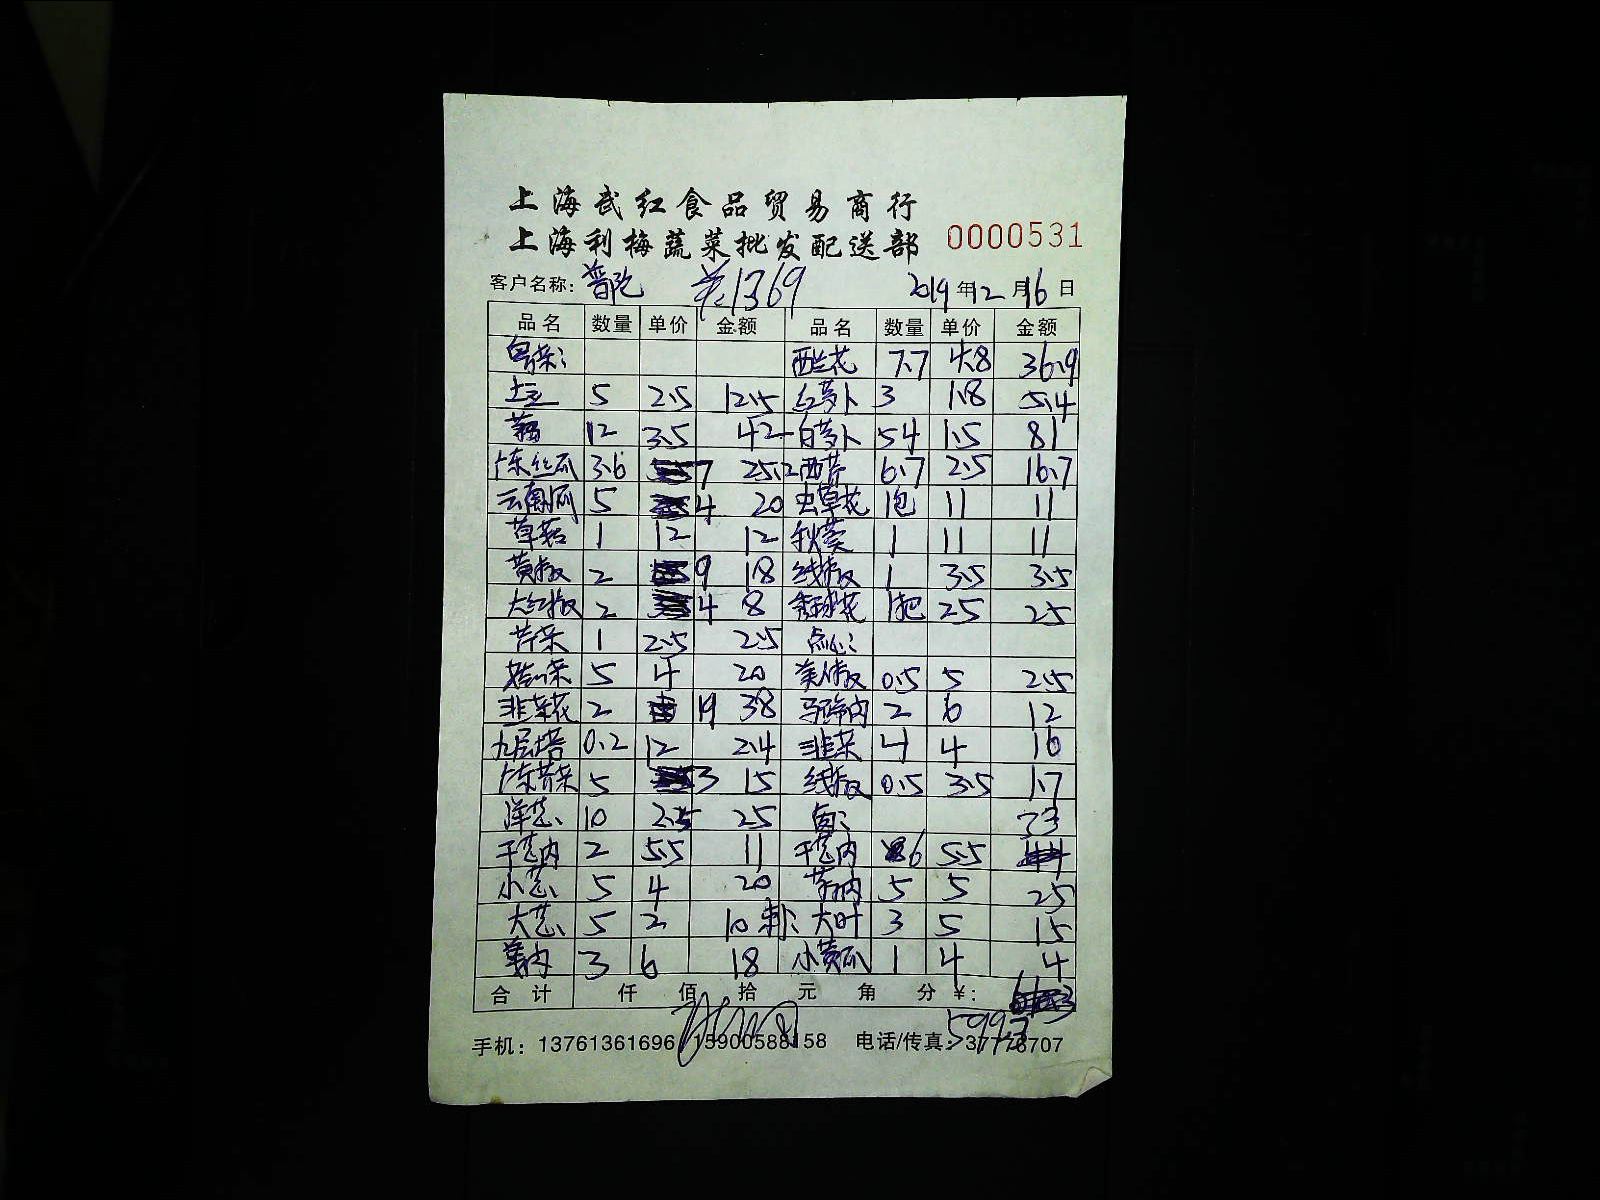 上海武红食品贸易商行
上海利梅蔬菜批发配送部 0000531
客户名称: 普陀 1369 2019年12月16日
品名 数量 单价 金额 品名 数量 单价 金额
粤菜: 西兰花 7.7 4.8 36.9
土豆 5 2.5 12.5 红萝卜 3 1.8 5.4
藕 12 3.5 42 白萝卜 54 1.5 81
广东丝瓜 3.6 7 25.2 西芹 6.7 2.5 16.7
云南瓜 5 4 20 虫草花 1包 11 11
草菇 1 12 12 秋葵 1 11 11
黄椒 2 9 18 线椒 1 3.5 3.5
大红椒 2 4 8 绣球花 1把 25 25
芹菜 1 2.5 2.5 点心:
5 4 20 美人椒 0.5 5 2.5
韭菜花 2 19 38 马蹄肉 2 6 12
九层塔 0.2 12 2.4 韭菜 4 4 16
广东芥菜 5 3 15 线椒 0.5 3.5 1.7
洋葱 10 2.5 25 33
干葱肉 2 5.5 11 干葱肉 6 5.5
小葱 5 4 20 5 5 25
大葱 5 2 10 刺: 大叶 3 5 15
姜肉 3 6 18 小黄瓜 1 4 4
合计 仟 佰 拾 元 角 分 ¥:
手机: 13761361696 15900588158 电话/传真: